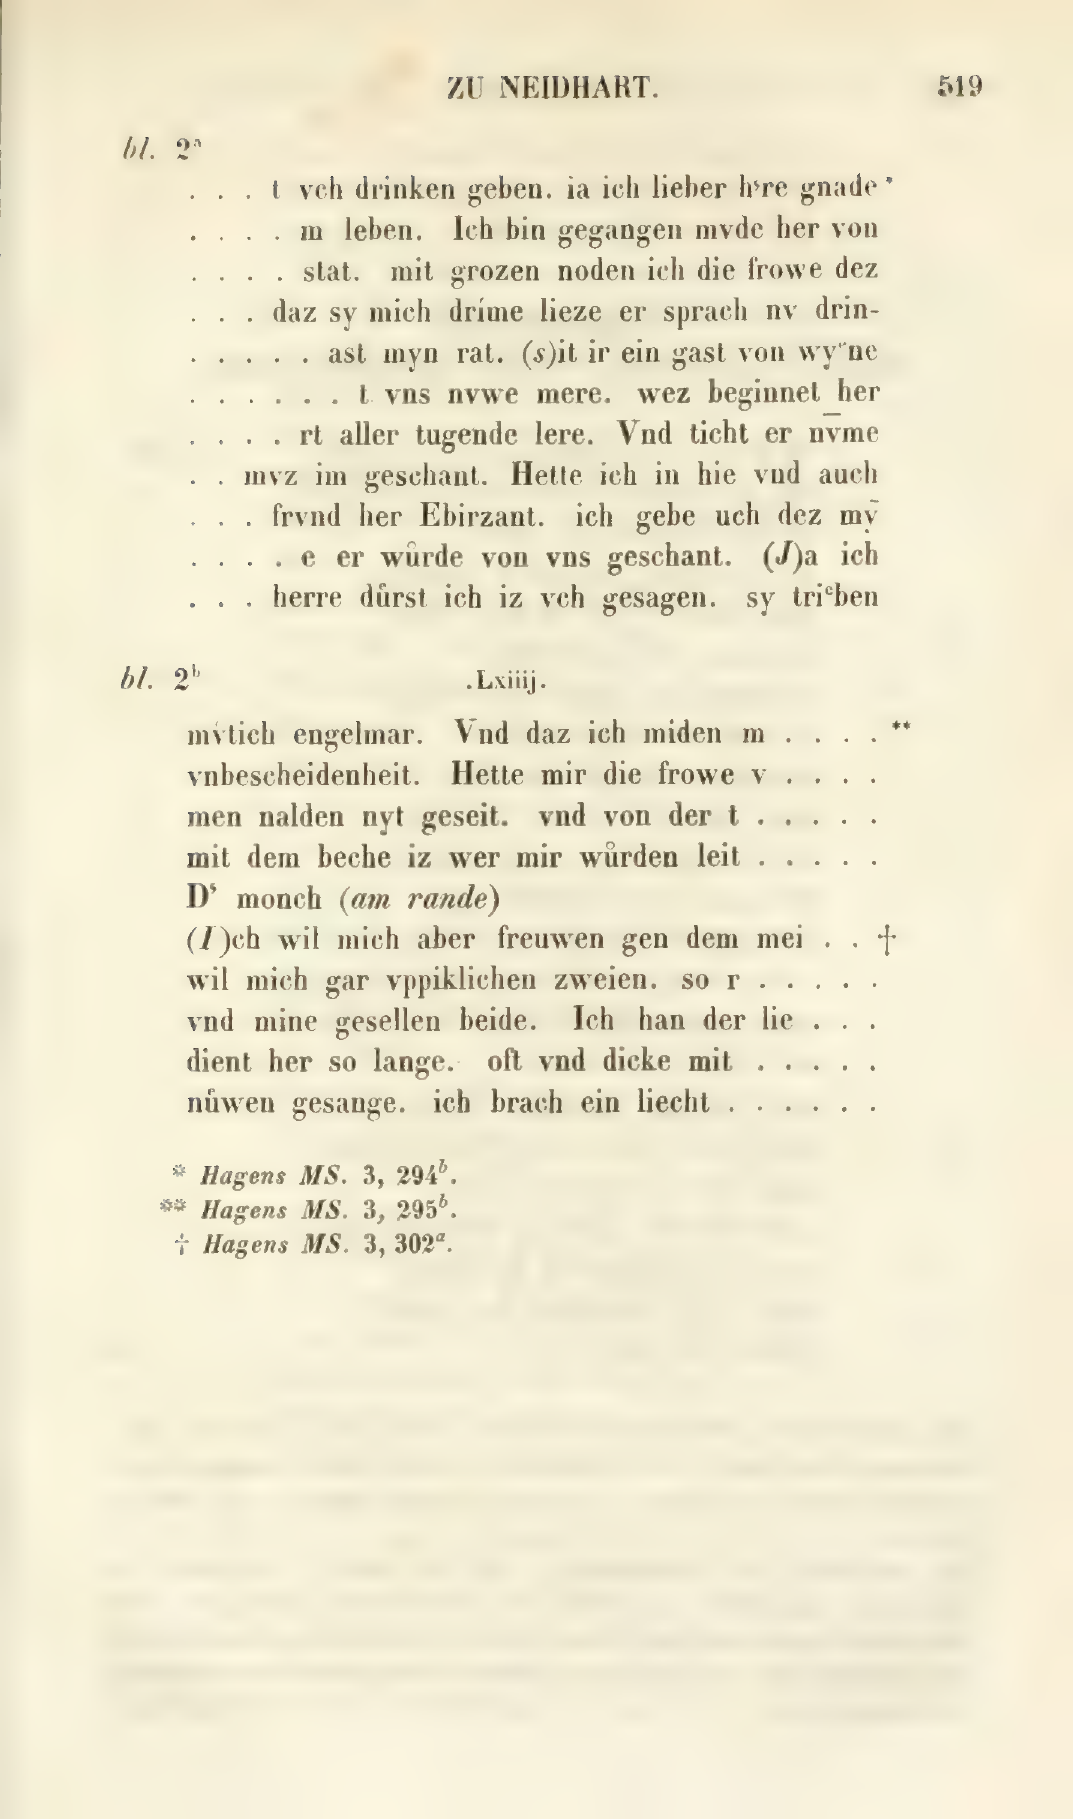 ZU NEIDHART. 519
bl. 2ᵃ
. . . t vch drinken geben. ia ich lieber hˢre gnade *
. . . . m leben. Ich bin gegangen mvde her von
. . . . stat. mit grozen noden ich die frowe dez
. . . daz sy mich dríme lieze er sprach nv drin-
. . . . . ast myn rat. (s)it ir ein gast von wyⁿne
. . . . . . t vns nvwe mere. wez beginnet her
. . . . rt aller tugende lere. Vnd ticht er nv̄me
. . mvz im geschant. Hette ich in hie vnd auch
. . . frvnd her Ebirzant. ich gebe uch dez mȳ
. . . . e er wůrde von vns geschant. (J)a ich
. . . herre důrst ich iz vch gesagen. sy triᵉben
bl. 2ᵇ .Lxiiij.
mv́tich engelmar. Vnd daz ich miden m . . . . **
vnbescheidenheit. Hette mir die frowe v . . . .
men nalden nyt geseit. vnd von der t . . . . .
mit dem beche iz wer mir wůrden leit . . . . .
Dˢ monch (am rande)
(I)ch wil mich aber freuwen gen dem mei . . †
wil mich gar vppiklichen zweien. so r . . . . .
vnd mine gesellen beide. Ich han der lie . . .
dient her so lange. oft vnd dicke mit . . . . .
nůwen gesange. ich brach ein liecht . . . . . .
* Hagens MS. 3, 294ᵇ.
** Hagens MS. 3, 295ᵇ.
† Hagens MS. 3, 302ᵃ.